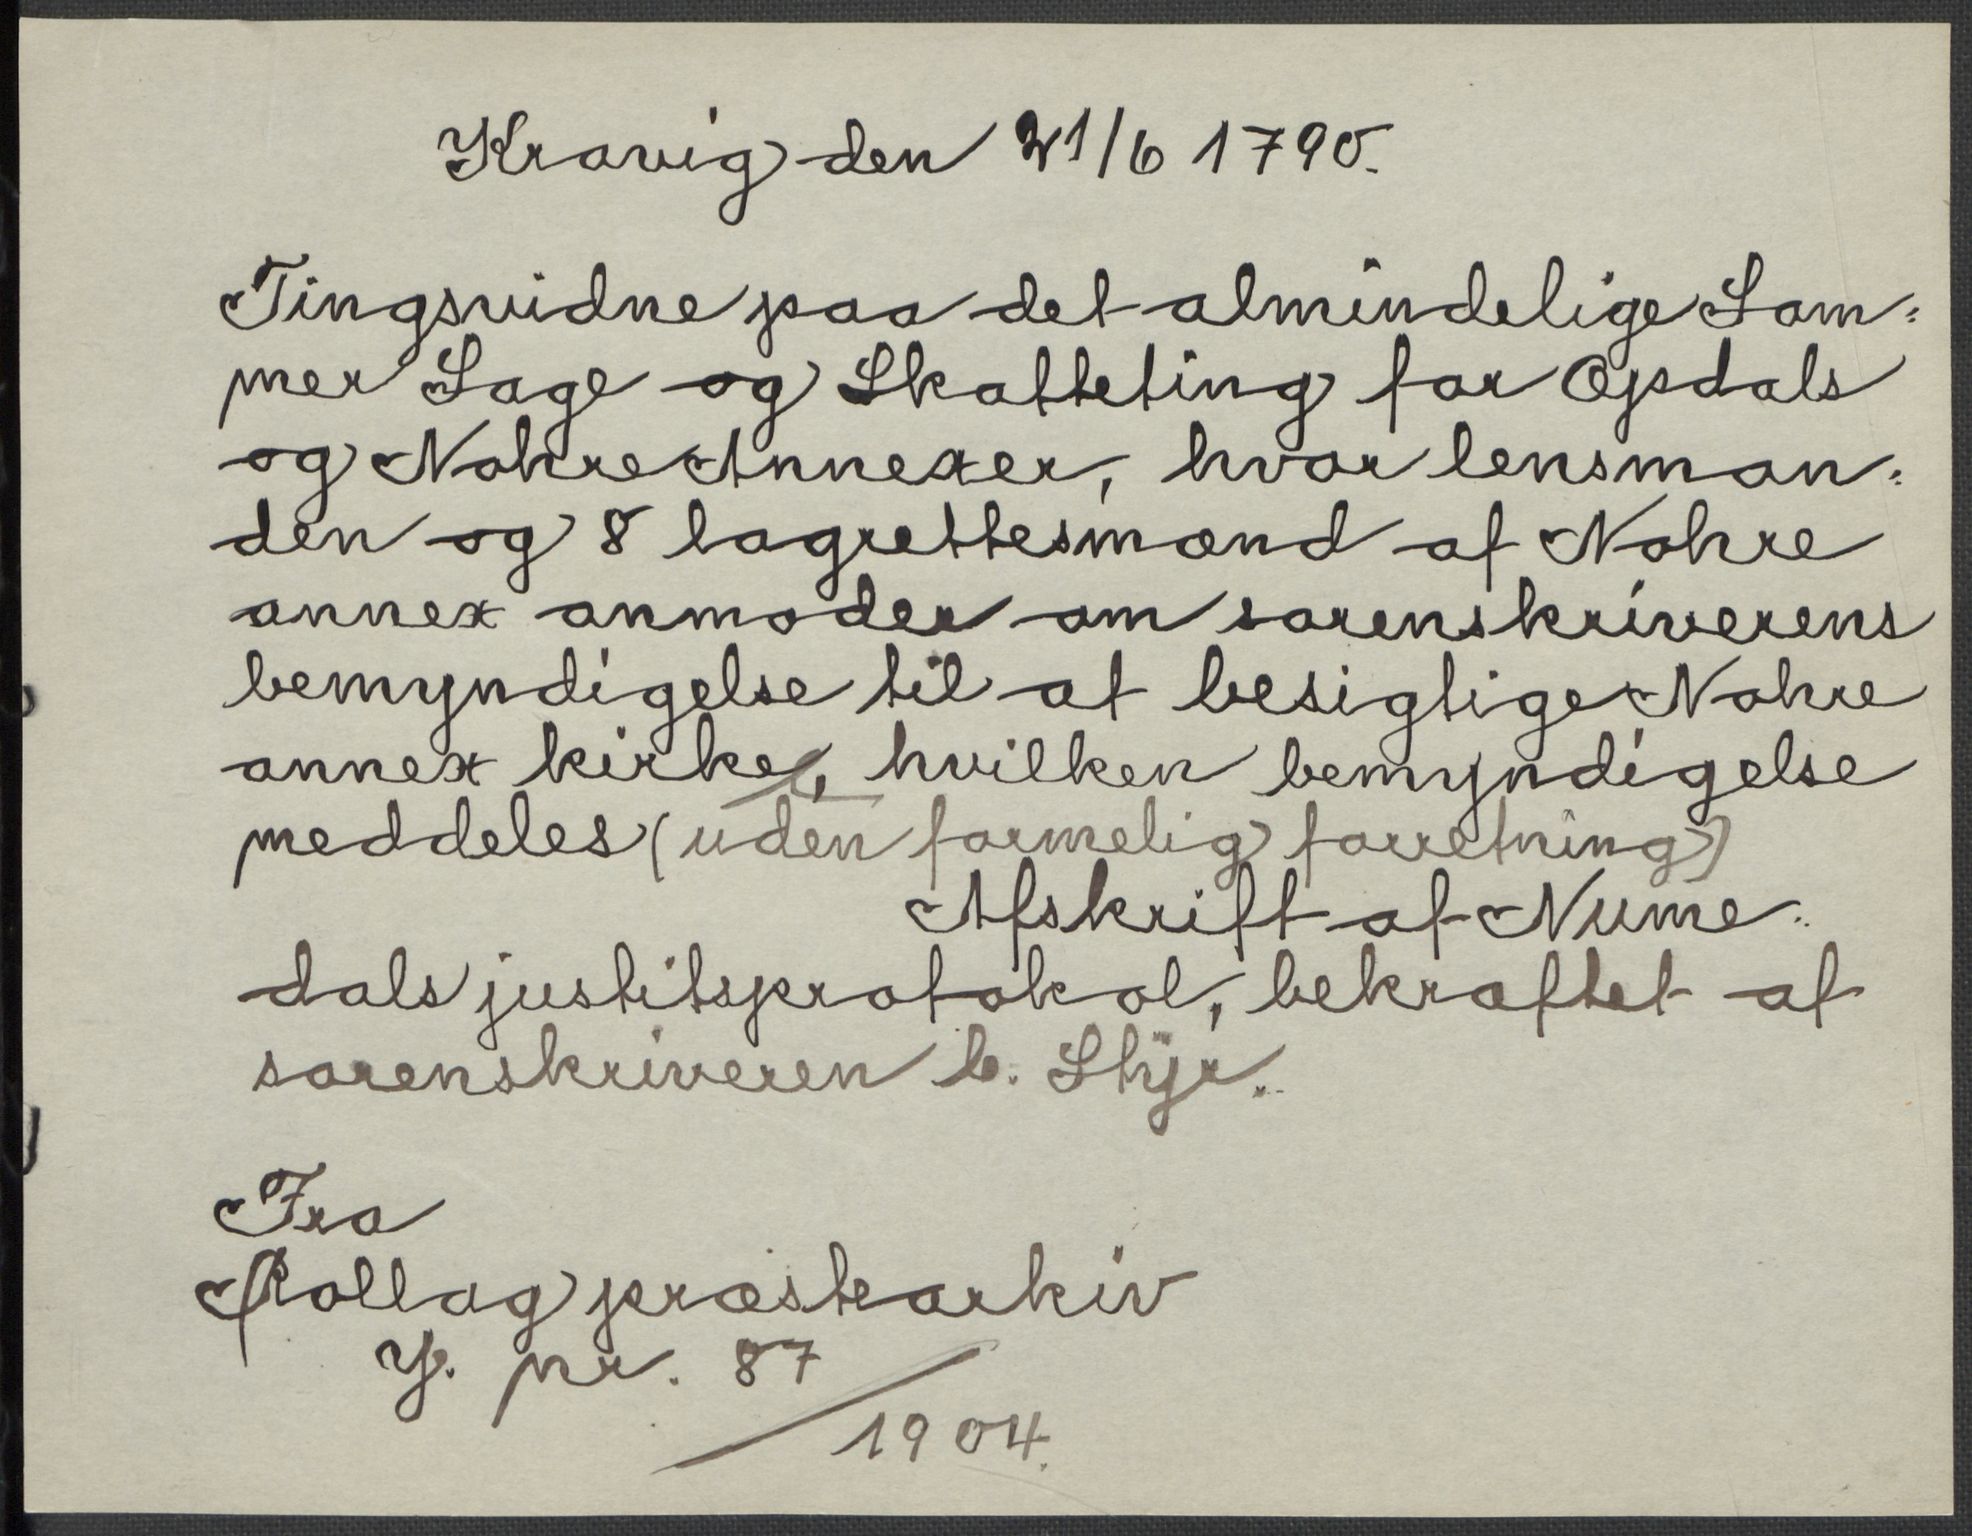 Kravig den 21/6 1790.
Tingsvidne paa det almindelige Som=
mer Sage og Skatteting for Opdals
og Nohre Annexer, hvor lensman=
den og 8 lagrettesmænd af Nohre
annex anmoder om sorenskriverens
bemyndigelse til at besigtige Nohre
annex kirke, hvilken bemyndigelse
meddeles (uden formelig forretning)
Afskrift af Nume=
dals justitsprotokol, bekræftet af
sorenskriveren b. Styr.
Fra
Rollag præstearkiv
J. nr. 87
/1904.